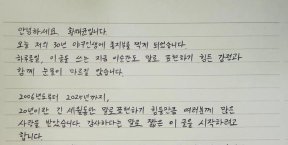 안녕하세요 황재균입니다.
오늘 저의 30년 야구인생에 종지부를 찍게 되었습니다.
하루종일, 이 글을 쓰는 지금 이순간도 말로 표현하기 힘든 감정과
함께 눈물이 마르질 않습니다.
2006년도부터 2025년까지,
20년이란 긴 세월동안 말로표현하기 힘들만큼 여러분께 많은
사랑을 받았습니다. 감사하다는 말로 짧은 이 글을 시작하려고
합니다.